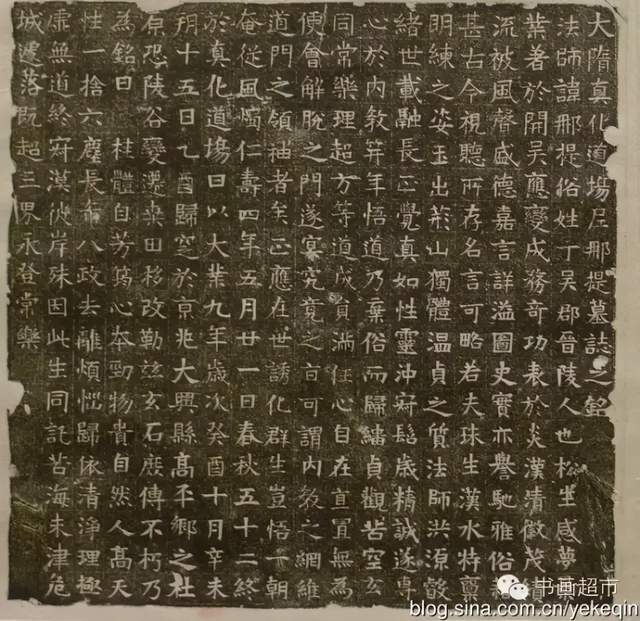 大隋真化道場尼那提墓誌之銘
法師諱那提俗姓丁吳郡晉陵人也松生感夢
葉著於開吳應變成務奇功表於炎漢清徽茂績
流被風聲盛德嘉言詳溢圖史實亦譽馳雅俗
甚古今視聽所存名言可略若夫珠生漢水特稟
明練之姿玉出荊山獨體温貞之質法師洪源
緒世載融長正覺真如性靈沖寂髫歲精誠遂專
心於內教笄年悟道乃棄俗而歸緇貞觀苦空玄
同常樂理超方等道成貞滿任心自在直置無為
便會解脫之門遂冥究竟之旨可謂內教之綱維
道門之領袖者矣正應在世誘化群生豈悟一朝
奄從風燭仁壽四年五月廿一日春秋五十二終
於真化道場曰以大業九年歲次癸酉十月辛未
朔十五日乙酉歸窆於京兆大興縣高平鄉之杜
原恐陵谷變遷桒田移改勒茲玄石庶傳不朽乃
為銘曰 桂體自芳筠心本勁物貴自然人高天
性一捨六塵長希八政去離煩惱歸依清淨理極
虛無道終寂漠彼岸殊因此生同託苦海未津危
城遽落既超三界永登常樂
书画超市
blog.sina.com.cn/yekeqin